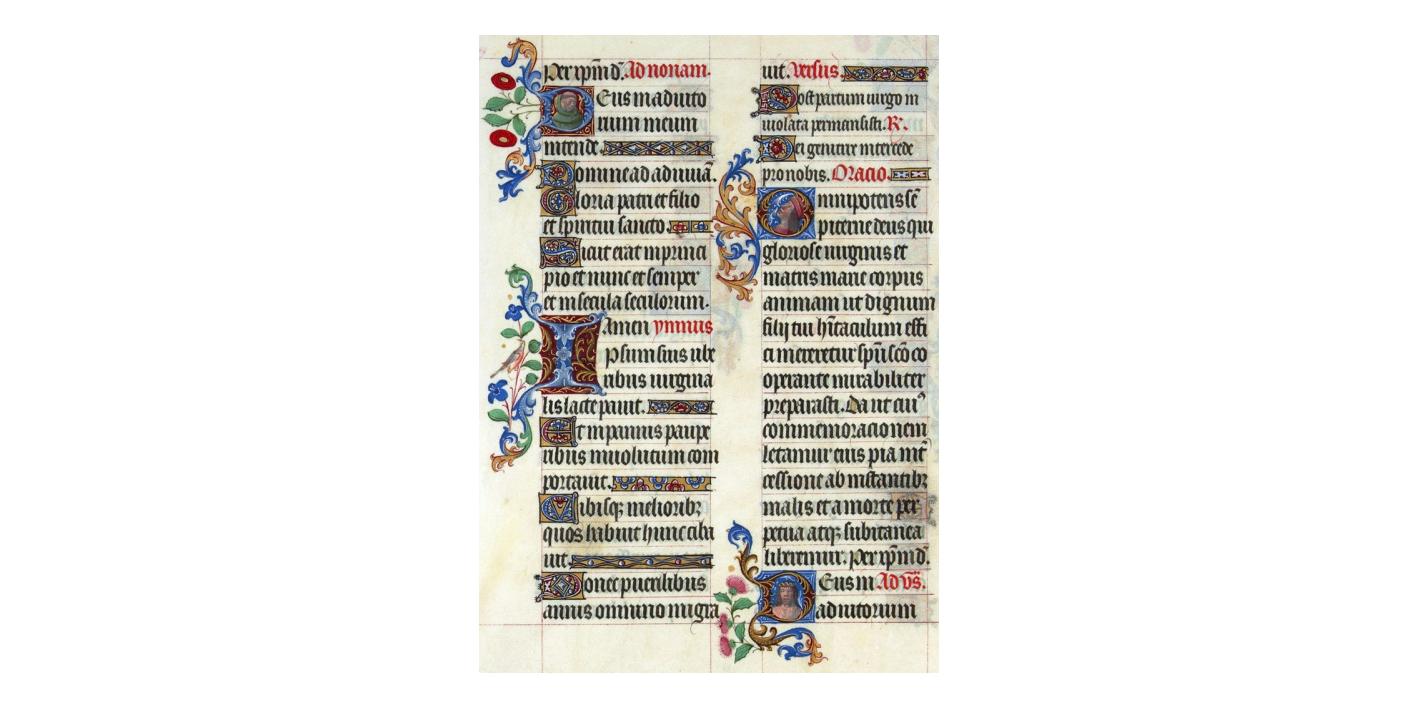 Per xp̄m d̄. Ad nonam.
Deus in adiuto
rium meum
intende.
Domine ad adiuuā.
Gloria patri et filio
et spiritui sancto.
Sicut erat in princi
pio et nunc et semper
et in secula seculorum.
Amen ymnus
Ipsum sinus ube
ribus uirgina
lis lacte pauit.
Et in pannis paupe
ribus inuolutum com
portauit.
Cibisqꝫ melioribꝫ
quos habuit hunc ciba
uit.
Donec puerilibus
annis omnino migra
uit. Versus.
Post partum uirgo in
uiolata permansisti. R̄.
Dei genitrix intercede
pro nobis. Oracio.
Omnipotens sē
piterne deus qui
gloriose uirginis et
matris marie corpus
animam ut dignum
filij tui hītaculum effi
ci mereretur spū scō co
operante mirabiliter
preparasti. Da ut cuiꝰ
commemoracionem
letamur eius pia int̄
cessione ab instantibꝫ
malis et a morte per
petua atqꝫ subitanea
liberemur. Per xp̄m d̄.
Deus in Ad vs̄.
adiutorium